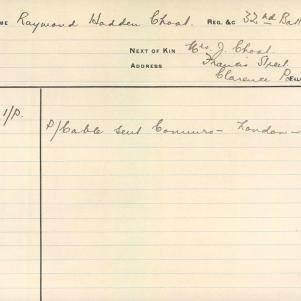 ME Raymond Hadden Choat. REG. &C 32nd Batt
NEXT OF KIN Mrs. J. Choat.
ADDRESS Francis Street.
Clarence
1/P.
P/Cable sent Commrs - London -